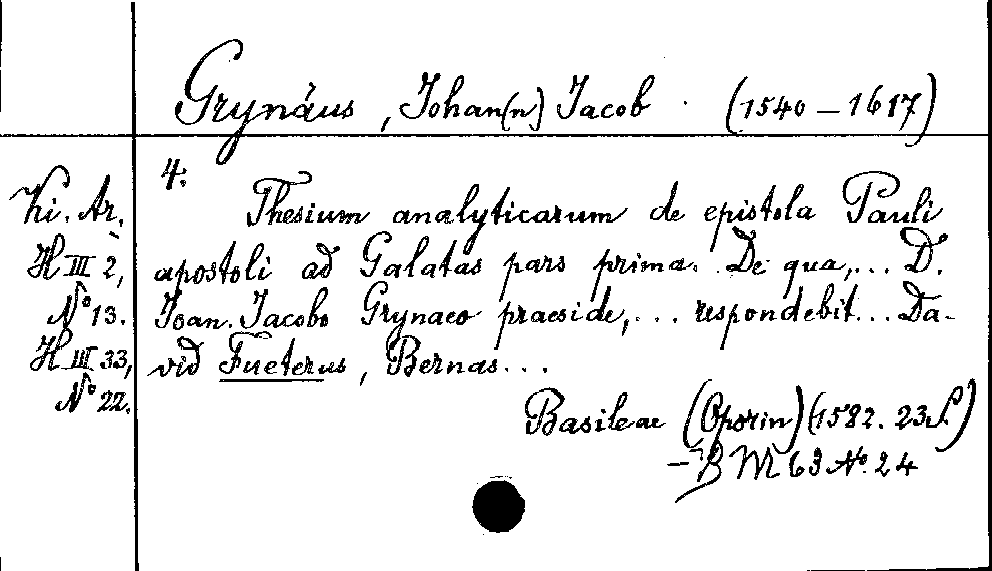 Grynäus, Johan(n) Jacob (1540-1617)
4.
Ki. Ar.
H III 2,
No 13.
H III 33,
No 22.
Thesium analyticarum de epistola Pauli
apostoli ad Galatas pars prima. De qua,... D.
Joan. Jacobo Grynaeo praeside,... respondebit... Da-
vid Fueterus, Bernas...
Basileae (Oporin) (1582. 23 S.)
- B M 63 No. 24